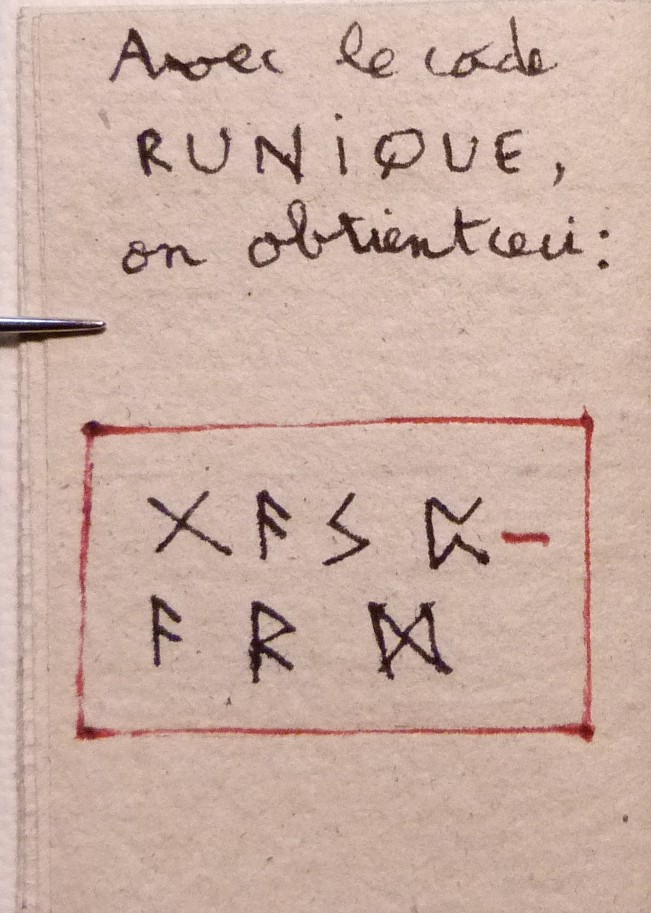 Avec le code
RUNiQUE,
on obtient ceci:
ᚷᚨᛊᛈ-
ᚨᚱᛞ